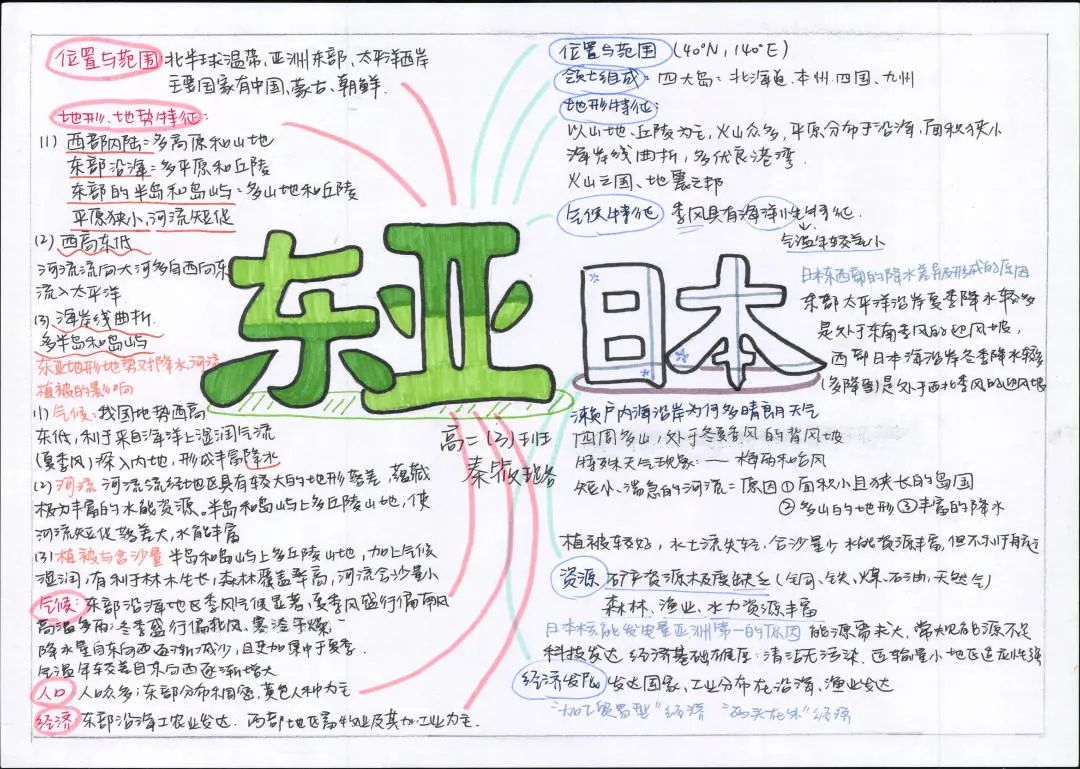 位置与范围 北半球温带、亚洲东部、太平洋西岸
主要国家有中国、蒙古、朝鲜.
地形、地势特征:
(1) 西部内陆:多高原和山地
东部沿海:多平原和丘陵
东部的半岛和岛屿:多山地和丘陵
平原狭小,河流短促
(2) 西高东低
河流流向大河多自西向东
流入太平洋.
(3) 海岸线曲折.
多半岛和岛屿
东亚地形地势对降水、河流
植被的影响
(1) 气候:我国地势西高
东低,利于来自海洋上湿润气流
(夏季风)深入内地,形成丰富降水
(2) 河流 河流流经地区具有较大的地形落差,蕴藏
极为丰富的水能资源。半岛和岛屿上多丘陵山地,使
河流短促落差大,水能丰富
(3) 植被与含沙量 半岛和岛屿上多丘陵山地,加上气候
湿润,有利于林木生长,森林覆盖率高,河流含沙量小
气候:东部沿海地区季风气候显著,夏季风盛行偏南风
高温多雨;冬季盛行偏北风、寒冷干燥
降水量自东向西逐渐减少,且更加集中于夏季.
气温年较差自东向西逐渐增大
人口 人口众多;东部分布稠密,黄色人种为主
经济 东部沿海工农业发达.西部地区畜牧业及其加工业为主.
东亚
日本
高二(3)班
位置与范围 (40°N,140°E)
领土组成:四大岛:北海道、本州、四国、九州
地形特征:
以山地、丘陵为主,火山众多,平原分布于沿海,面积狭小
海岸线曲折,多优良港湾.
火山之国、地震之邦
气候特征 季风具有海洋性特征.
气温年较差小
日本东西部的降水差异及形成的原因
东部太平洋沿岸夏季降水较多
是处于东南季风的迎风坡,
西部日本海沿岸冬季降水较多
(多降雪)是处于西北季风的迎风坡
濑户内海沿岸为何多晴朗天气
四周多山,处于冬夏季风的背风坡
特殊天气现象:——梅雨和台风
短小、湍急的河流:原因①面积小且狭长的岛国
②多山的地形 ③丰富的降水
植被较好,水土流失轻,含沙量少 水能资源丰富,但不利于航运
资源 矿产资源极度缺乏(铜、铁、煤、石油,天然气)
森林、渔业、水力资源丰富
日本核能发电量亚洲第一的原因 能源需求大,常规能源不足
科技发达 经济基础雄厚:清洁无污染、运输量小 地区适应性强
经济发展 发达国家、工业分布在沿海、渔业发达
"加工贸易型"经济 "两头在外"经济